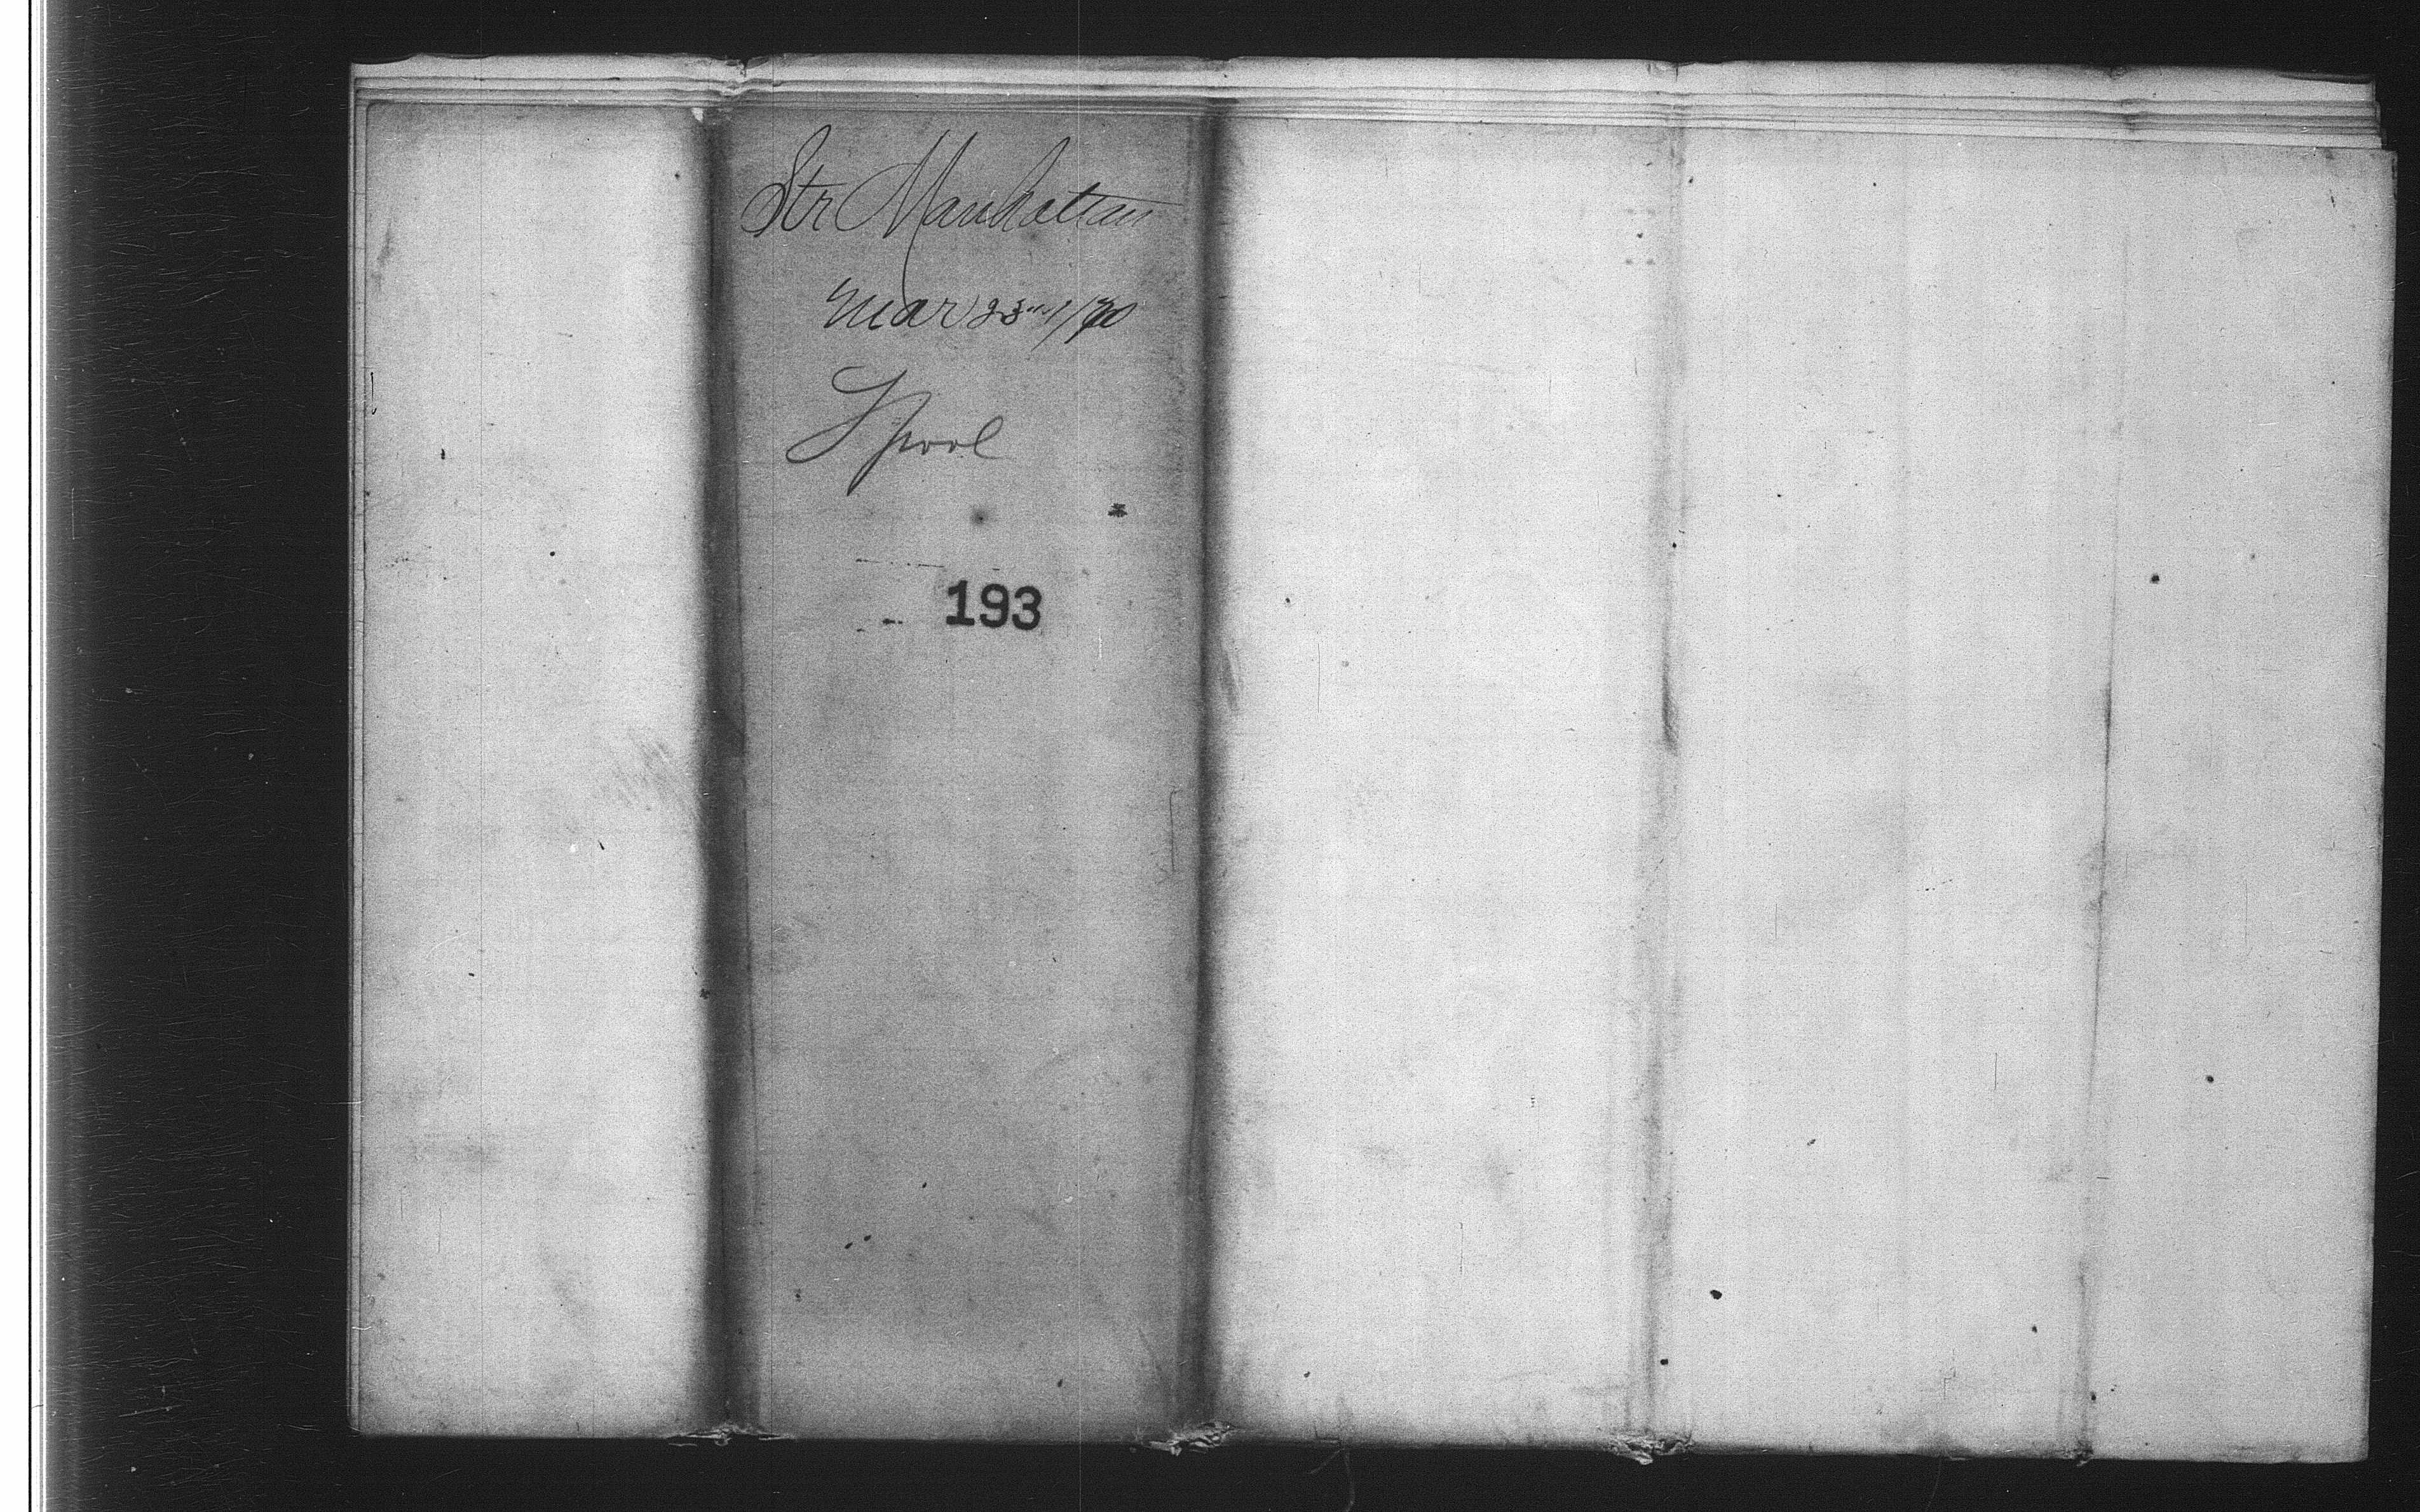 Str Manhattan
Mar 23rd/70
Lpool
193